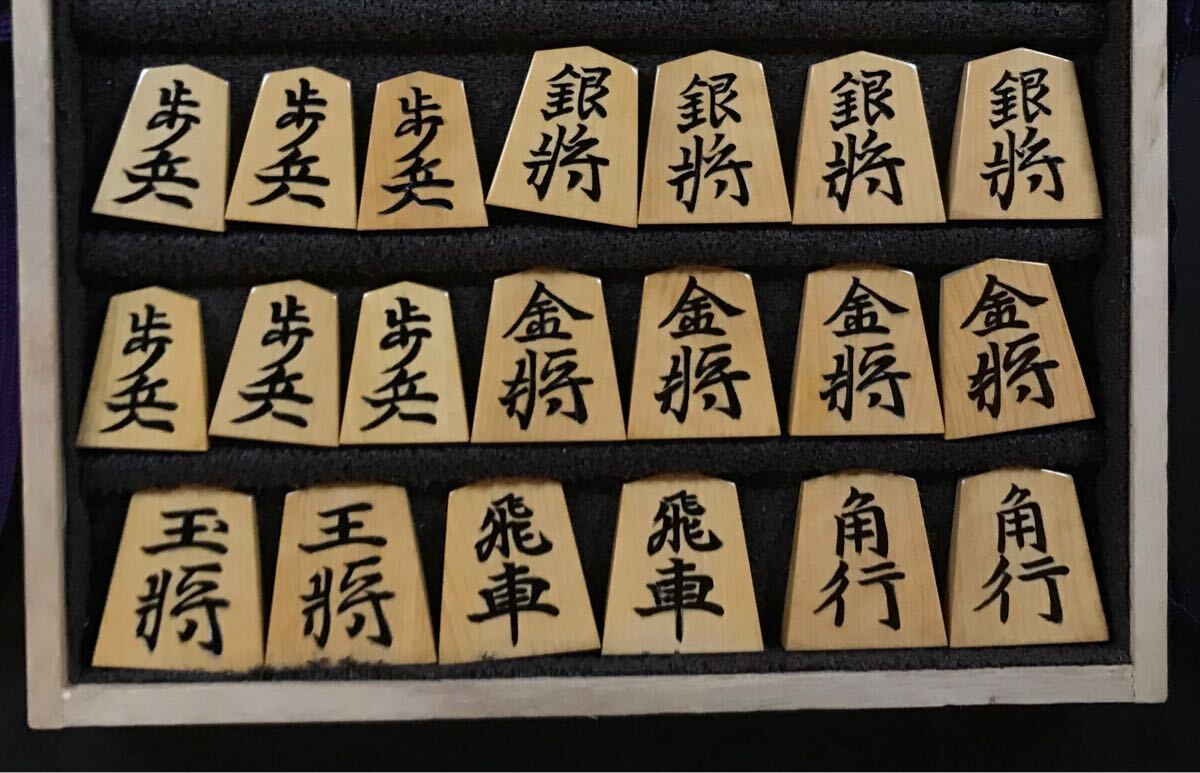 歩兵 歩兵 歩兵 銀將 銀將 銀將 銀將
歩兵 歩兵 歩兵 金将 金将 金将 金将
玉将 王将 飛車 飛車 角行 角行